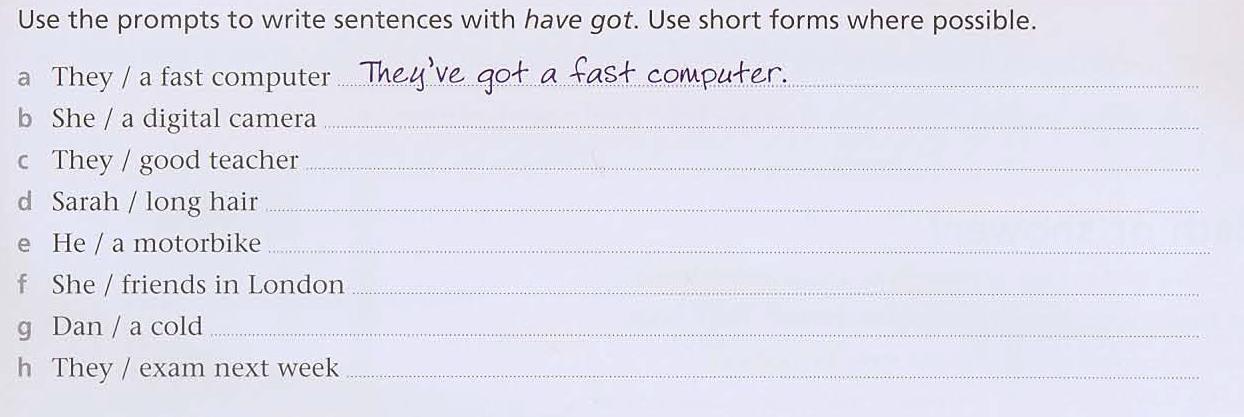 Use the prompts to write sentences with have got. Use short forms where possible.
a They / a fast computer They've got a fast computer.
b She / a digital camera
c They / good teacher
d Sarah / long hair
e He / a motorbike
f She / friends in London
g Dan / a cold
h They / exam next week